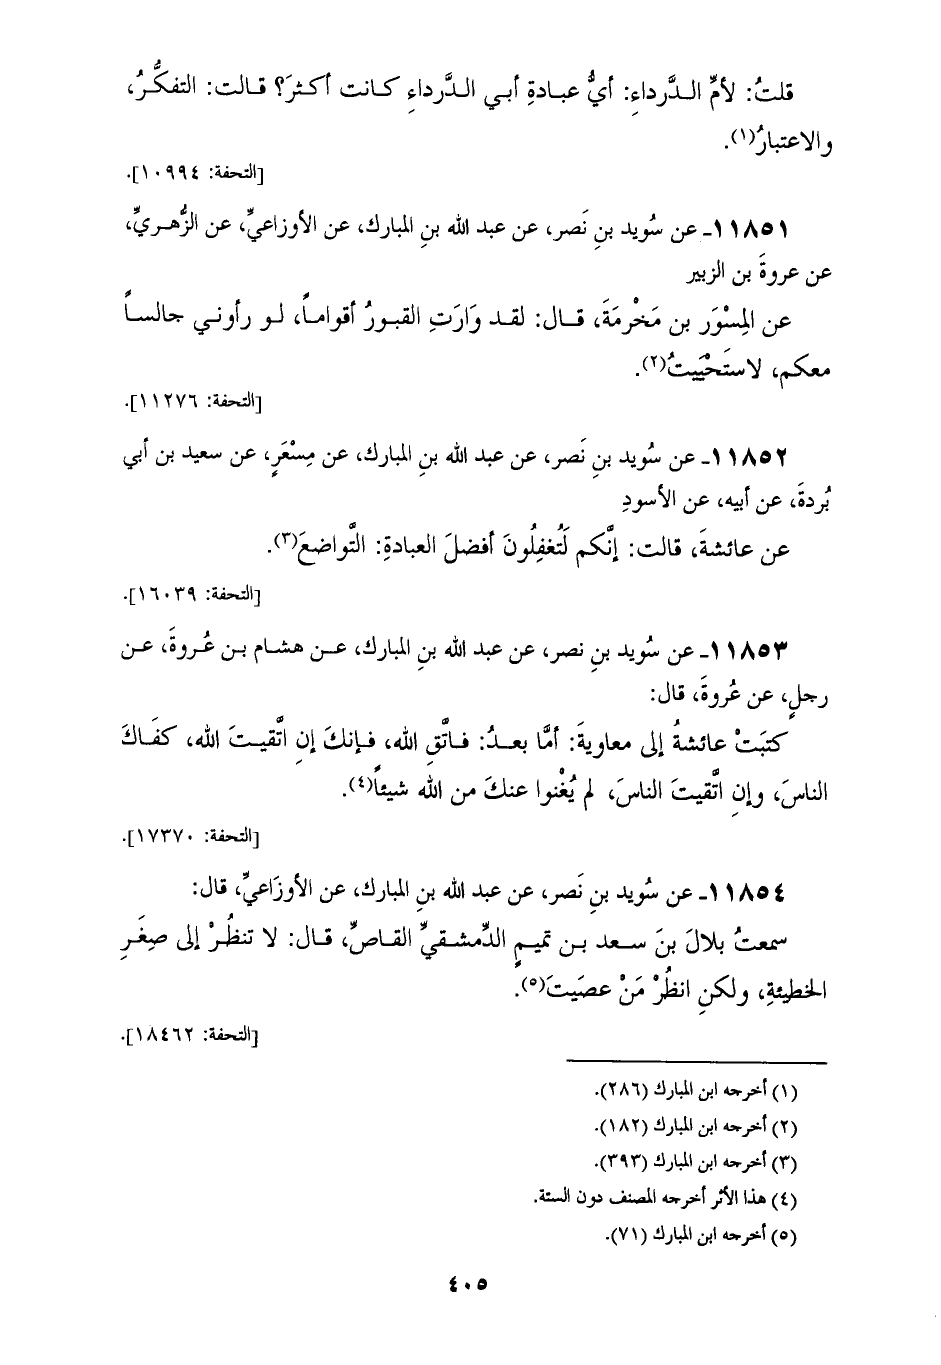 قلتُ: لأمِّ الدَّرداءِ: أيُّ عبادةِ أبي الدَّرداءِ كانت أكثرَ؟ قالت: التفكُّرُ،
والاعتبارُ(١).
[التحفة: ١٠٩٩٤].
١١٨٥١- عن سُويد بنِ نَصر، عن عبد الله بنِ المبارك، عن الأوزاعيِّ، عن الزُّهريِّ،
عن عروةَ بن الزبير
عن المِسْوَر بن مَخْرمَةَ، قال: لقد وَارَتِ القبورُ أقواماً، لو رأوني جالساً
معكم، لاستَحْيَيتُ(٢).
[التحفة: ١١٢٧٦].
١١٨٥٢- عن سُويد بنِ نَصر، عن عبد الله بنِ المبارك، عن مِسْعَرٍ، عن سعيد بن أبي
بُردةَ، عن أبيه، عن الأسودِ
عن عائشةَ، قالت: إنَّكم لَتُغفِلُونَ أفضلَ العبادةِ: التَّواضعَ(٣).
[التحفة: ١٦٠٣٩].
١١٨٥٣- عن سُويد بنِ نصر، عن عبد الله بنِ المبارك، عن هشام بن عُروةَ، عن
رجلٍ، عن عُروةَ، قال:
كتبَتْ عائشةُ إلى معاويةَ: أمَّا بعدُ: فاتَّقِ الله، فإنكَ إنِ اتَّقيتَ الله، كفَاكَ
الناسَ، وإنِ اتَّقيتَ الناسَ، لم يُغْنوا عنكَ من الله شيئاً(٤).
[التحفة: ١٧٣٧٠].
١١٨٥٤- عن سُويد بنِ نَصر، عن عبد الله بنِ المبارك، عن الأوزَاعيِّ، قال:
سمعتُ بلالَ بنَ سعد بن تميمٍ الدِّمشقيِّ القاصِّ، قال: لا تنظُرْ إلى صِغَرِ
الخطيئةِ، ولكنِ انظُرْ مَنْ عصَيتَ(٥).
[التحفة: ١٨٤٦٢].
(١) أخرجه ابن المبارك (٢٨٦).
(٢) أخرجه ابن المبارك (١٨٢).
(٣) أخرجه ابن المبارك (٣٩٣).
(٤) هذا الأثر أخرجه المصنف دون الستة.
(٥) أخرجه ابن المبارك (٧١).
٤٠٥